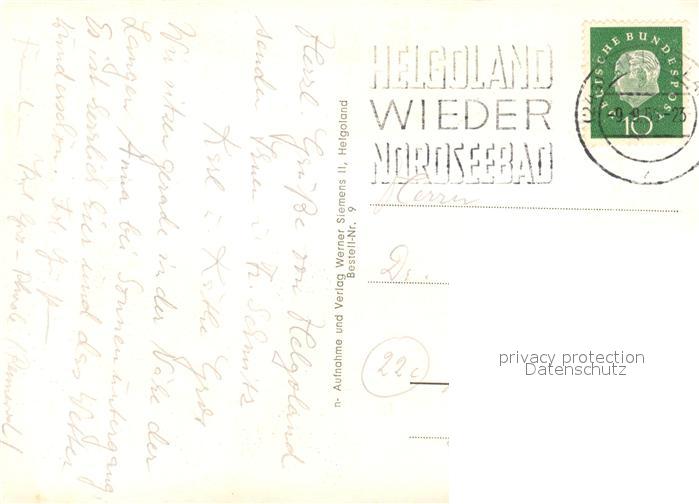 HELGOLAND
WIEDER
NORDSEEBAD
DEUTSCHE BUNDESPOST
10
-9.9.59-23
Herrn
Dr.
22c
privacy protection
Datenschutz
n- Aufnahme und Verlag Werner Siemens II, Helgoland
Bestell-Nr. 9
Herzl. Grüße von Helgoland
senden Ihnen u. Fr. Schmitz
Karl u. Käthe
Wir sitzen gerade in der Nähe der
Langen Anna bei Sonnenuntergang.
Es ist herrlich hier und das Wetter
wunderschön.